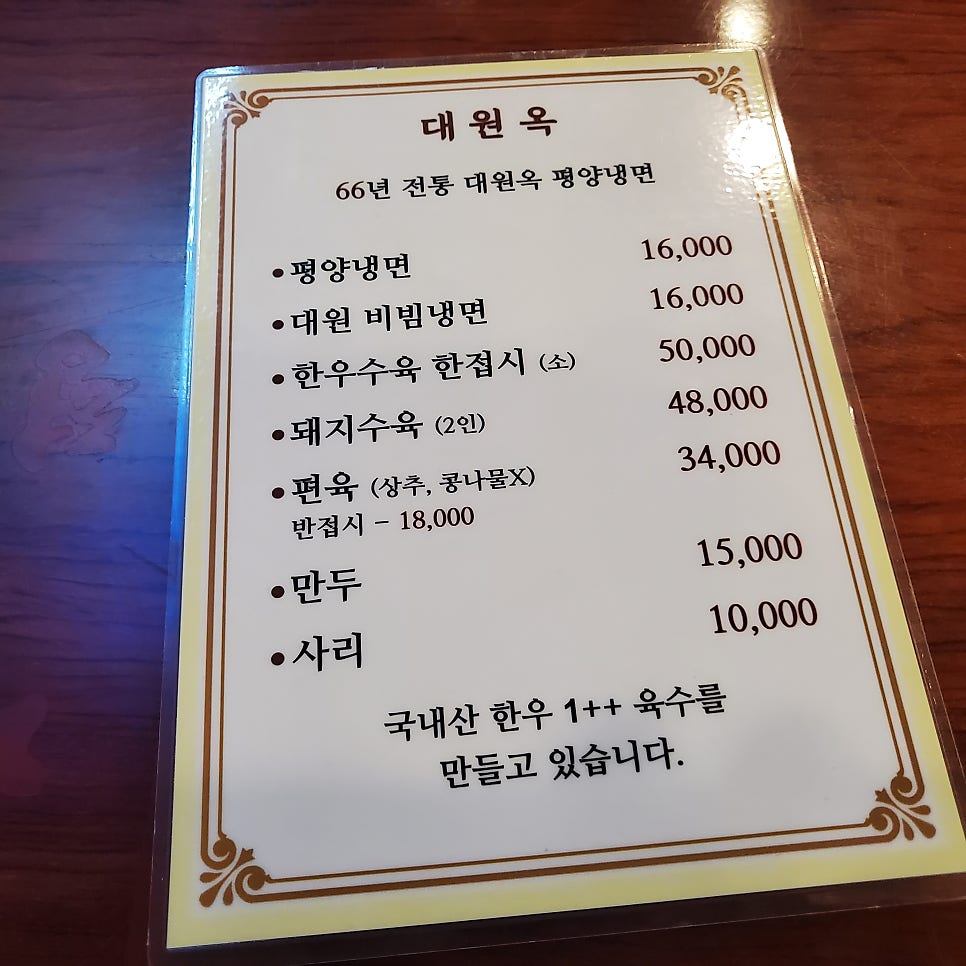 대원옥
66년 전통 대원옥 평양냉면
•평양냉면 16,000
•대원 비빔냉면 16,000
•한우수육 한접시 (소) 50,000
•돼지수육 (2인) 48,000
•편육 (상추, 콩나물X) 34,000
반접시 - 18,000
•만두 15,000
•사리 10,000
국내산 한우 1++ 육수를
만들고 있습니다.